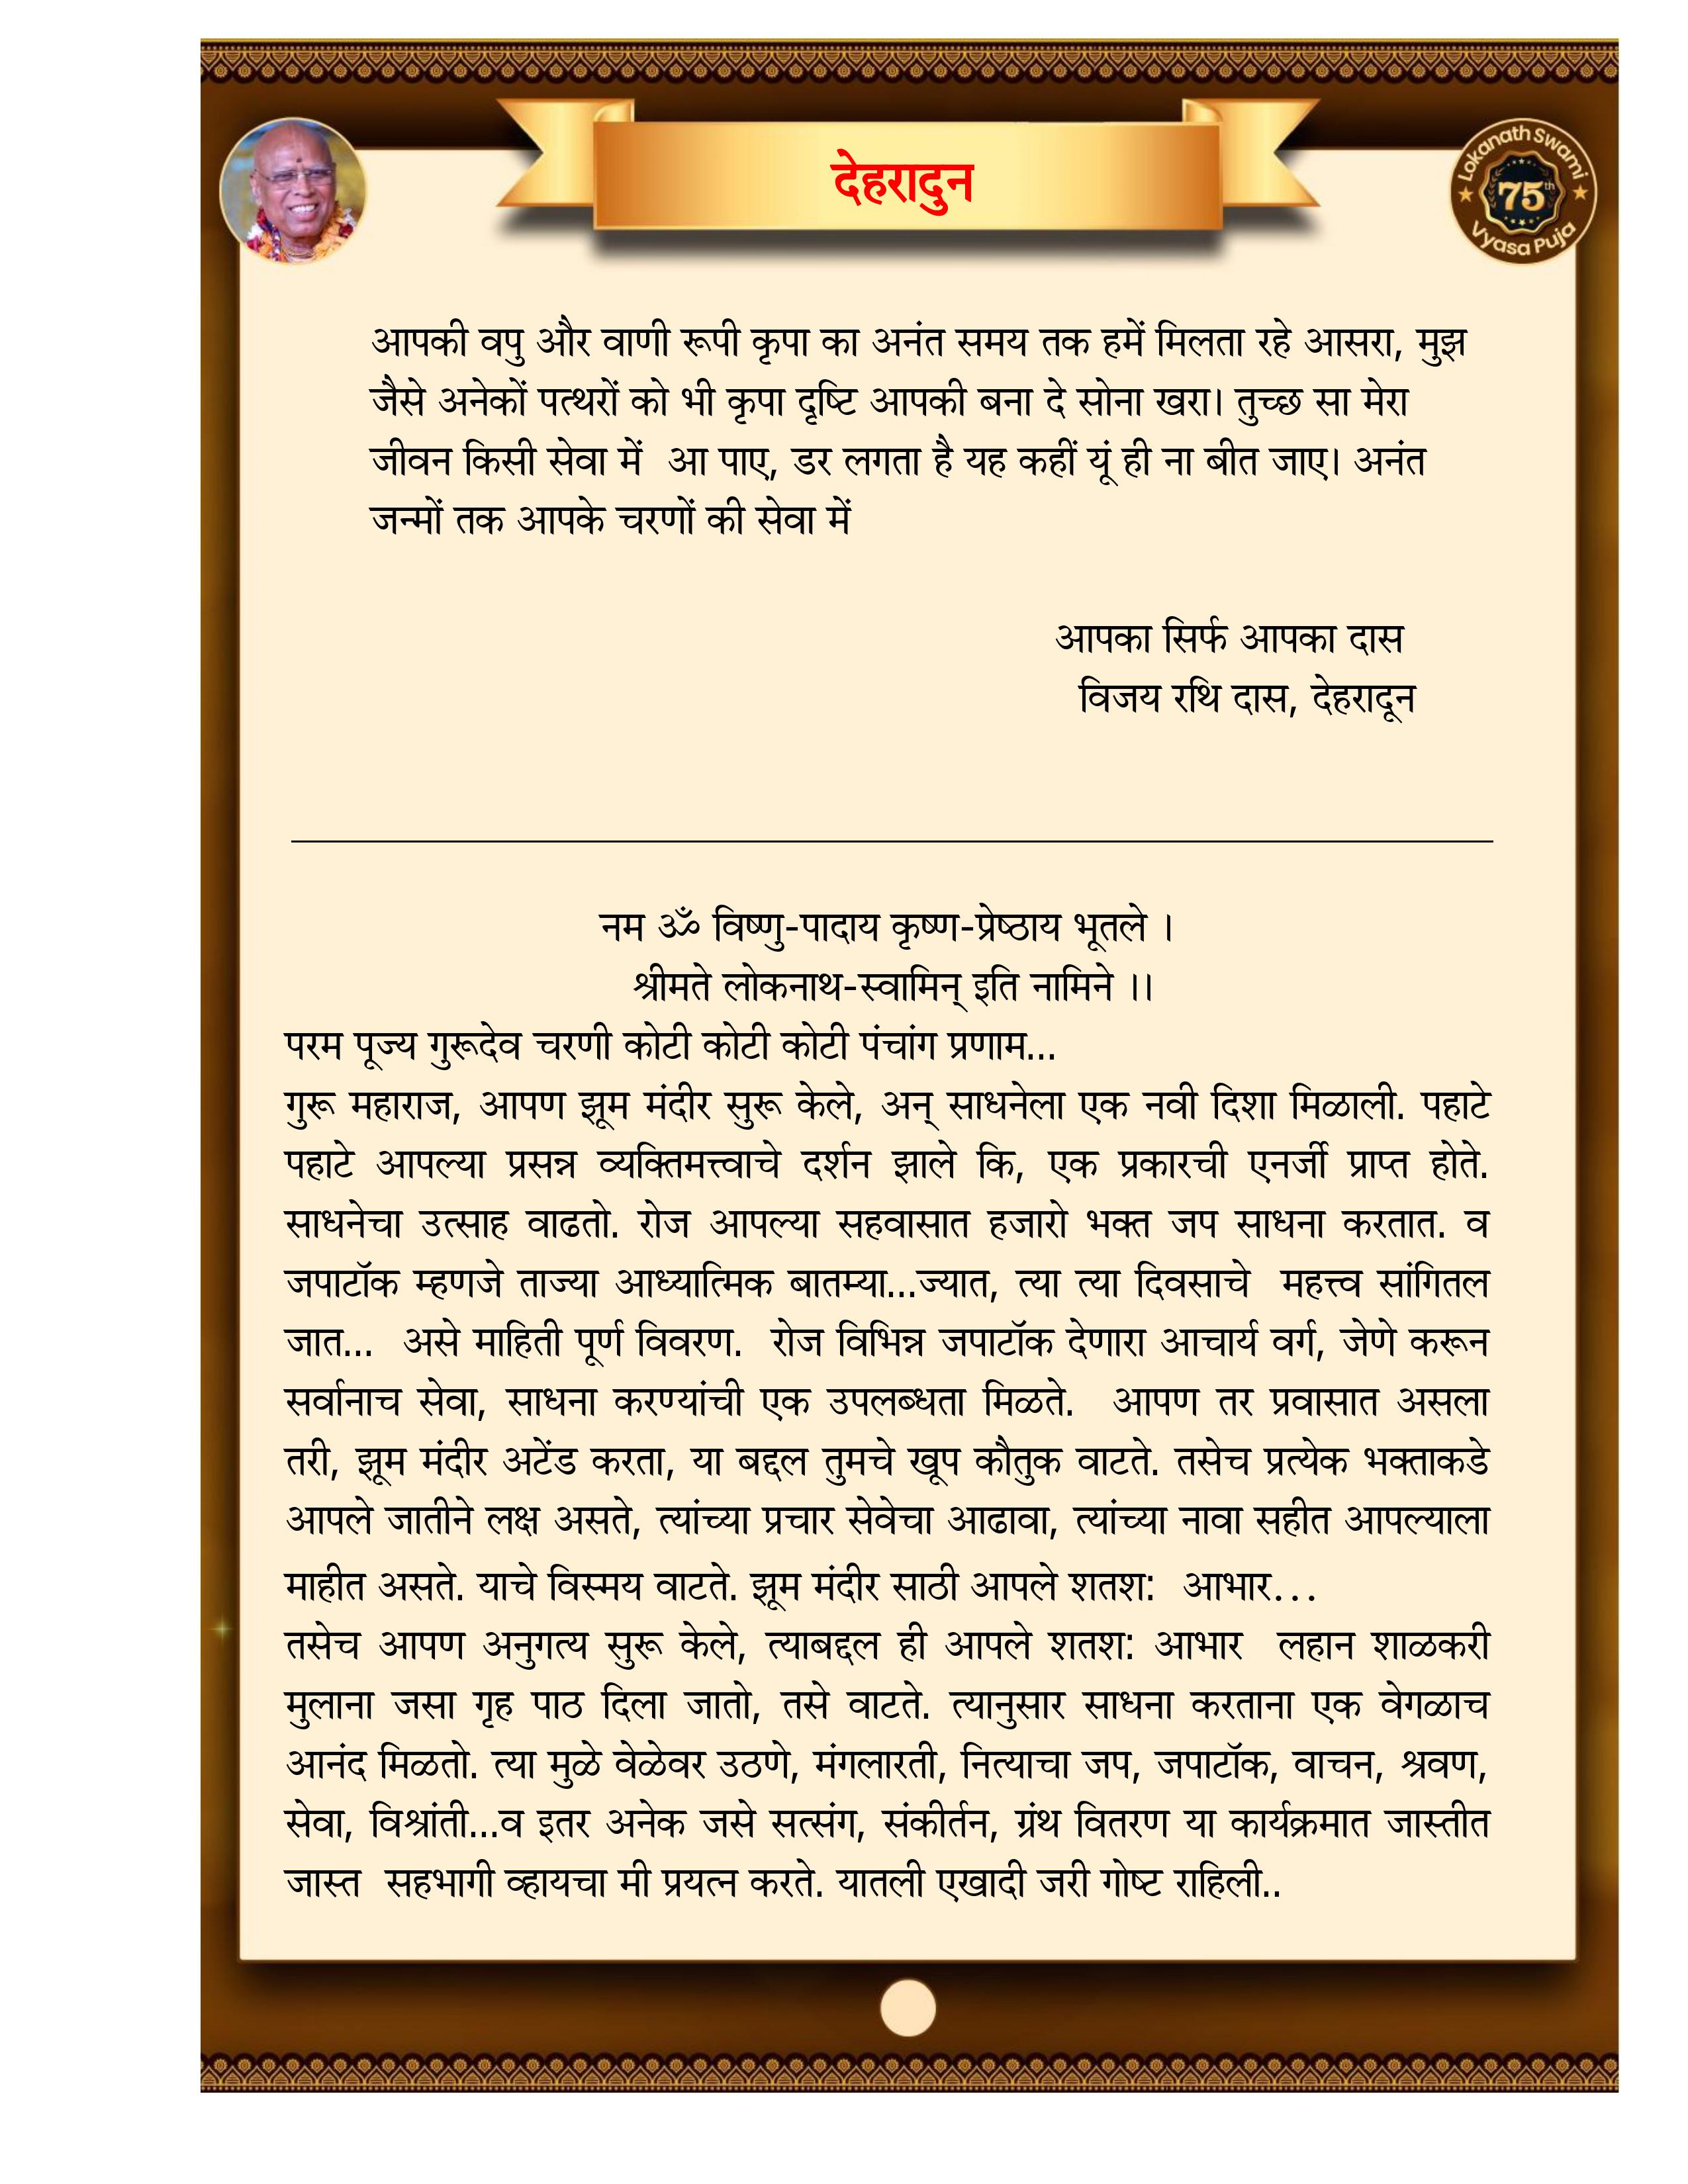 देहरादुन
Lokanath Swami
75th
Vyasa Puja
आपकी वपु और वाणी रूपी कृपा का अनंत समय तक हमें मिलता रहे आसरा, मुझ
जैसे अनेकों पत्थरों को भी कृपा दृष्टि आपकी बना दे सोना खरा। तुच्छ सा मेरा
जीवन किसी सेवा में  आ पाए, डर लगता है यह कहीं यूं ही ना बीत जाए। अनंत
जन्मों तक आपके चरणों की सेवा में
आपका सिर्फ आपका दास
विजय रथि दास, देहरादून
नम ॐ विष्णु-पादाय कृष्ण-प्रेष्ठाय भूतले ।
श्रीमते लोकनाथ-स्वामिन् इति नामिने ।।
परम पूज्य गुरूदेव चरणी कोटी कोटी कोटी पंचांग प्रणाम...
गुरू महाराज, आपण झूम मंदीर सुरू केले, अन् साधनेला एक नवी दिशा मिळाली. पहाटे
पहाटे आपल्या प्रसन्न व्यक्तिमत्त्वाचे दर्शन झाले कि, एक प्रकारची एनर्जी प्राप्त होते.
साधनेचा उत्साह वाढतो. रोज आपल्या सहवासात हजारो भक्त जप साधना करतात. व
जपाटॉक म्हणजे ताज्या आध्यात्मिक बातम्या...ज्यात, त्या त्या दिवसाचे  महत्त्व सांगितल
जात...  असे माहिती पूर्ण विवरण.  रोज विभिन्न जपाटॉक देणारा आचार्य वर्ग, जेणे करून
सर्वानाच सेवा, साधना करण्यांची एक उपलब्धता मिळते.  आपण तर प्रवासात असला
तरी, झूम मंदीर अटेंड करता, या बद्दल तुमचे खूप कौतुक वाटते. तसेच प्रत्येक भक्ताकडे
आपले जातीने लक्ष असते, त्यांच्या प्रचार सेवेचा आढावा, त्यांच्या नावा सहीत आपल्याला
माहीत असते. याचे विस्मय वाटते. झूम मंदीर साठी आपले शतश:  आभार...
तसेच आपण अनुगत्य सुरू केले, त्याबद्दल ही आपले शतश: आभार  लहान शाळकरी
मुलाना जसा गृह पाठ दिला जातो, तसे वाटते. त्यानुसार साधना करताना एक वेगळाच
आनंद मिळतो. त्या मुळे वेळेवर उठणे, मंगलारती, नित्याचा जप, जपाटॉक, वाचन, श्रवण,
सेवा, विश्रांती...व इतर अनेक जसे सत्संग, संकीर्तन, ग्रंथ वितरण या कार्यक्रमात जास्तीत
जास्त  सहभागी व्हायचा मी प्रयत्न करते. यातली एखादी जरी गोष्ट राहिली..